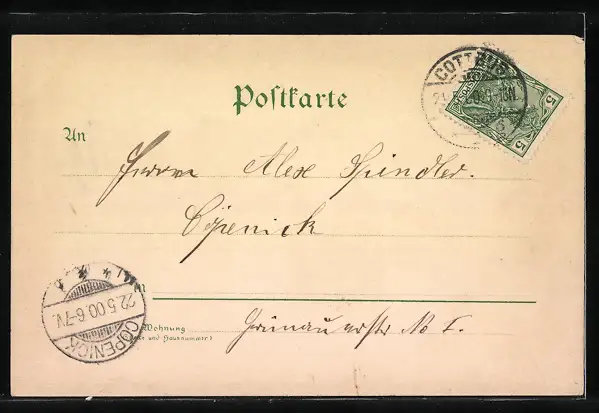 COTTBUS
5
5
Postkarte
An
Herrn Alex Spindler.
Cöpenick
in
22.5.00.6-7V.
CÖPENICK
Wohnung
und Hausnummer)
Grünauerstr No